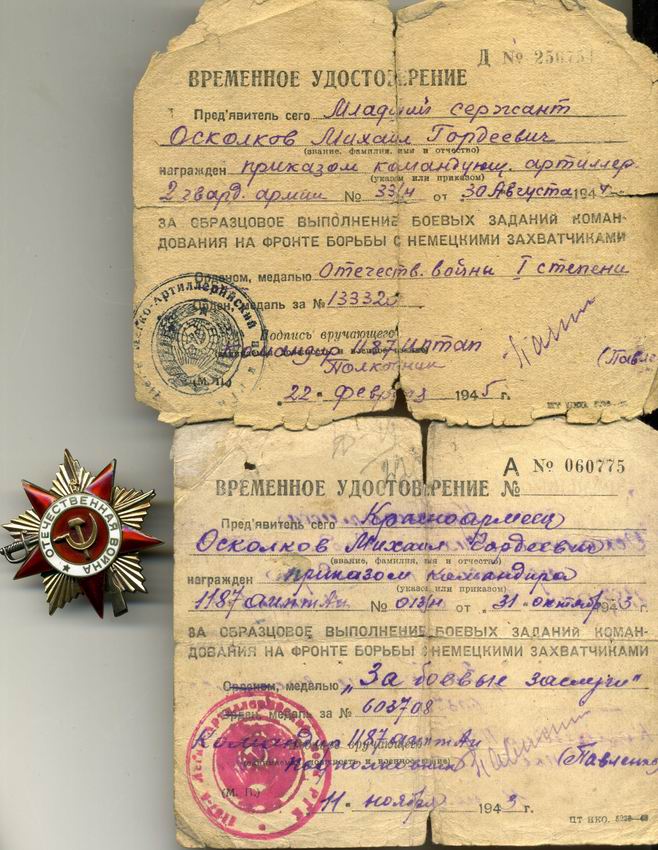 Д № 25675
ВРЕМЕННОЕ УДОСТОВЕРЕНИЕ
Пред'явитель сего Младший сержант
Осколков Михаил Гордеевич
(звание, фамилия, имя и отчество)
награжден приказом командующ. артиллер.
(указом или приказом)
2 гвард. армии № 33/н от 30 Августа 1944
ЗА ОБРАЗЦОВОЕ ВЫПОЛНЕНИЕ БОЕВЫХ ЗАДАНИЙ КОМАН-
ДОВАНИЯ НА ФРОНТЕ БОРЬБЫ С НЕМЕЦКИМИ ЗАХВАТЧИКАМИ
Орденом, медалью Отечеств. войны I степени
Орден, медаль за № 133320
Подпись вручающего
Командир 1187 иптап
Полковник
(М. П.)
"22" февраля 1945 г.
ОТЕЧЕСТВЕННАЯ ВОЙНА
А № 060775
ВРЕМЕННОЕ УДОСТОВЕРЕНИЕ №
Пред'явитель сего Красноармеец
Осколков Михаил Гордеевич
(звание, фамилия, имя и отчество)
награжден приказом командира
(указом или приказом)
1187 № 013/н от "31" октября 1943 г.
ЗА ОБРАЗЦОВОЕ ВЫПОЛНЕНИЕ БОЕВЫХ ЗАДАНИЙ КОМАН-
ДОВАНИЯ НА ФРОНТЕ БОРЬБЫ С НЕМЕЦКИМИ ЗАХВАТЧИКАМИ
Орденом, медалью „За боевые заслуги"
Орден, медаль за № 603708
Командир 1187
Подполковник (Павленко
(М. П.)
"11" ноября 1943 г.
ПТ НКО.